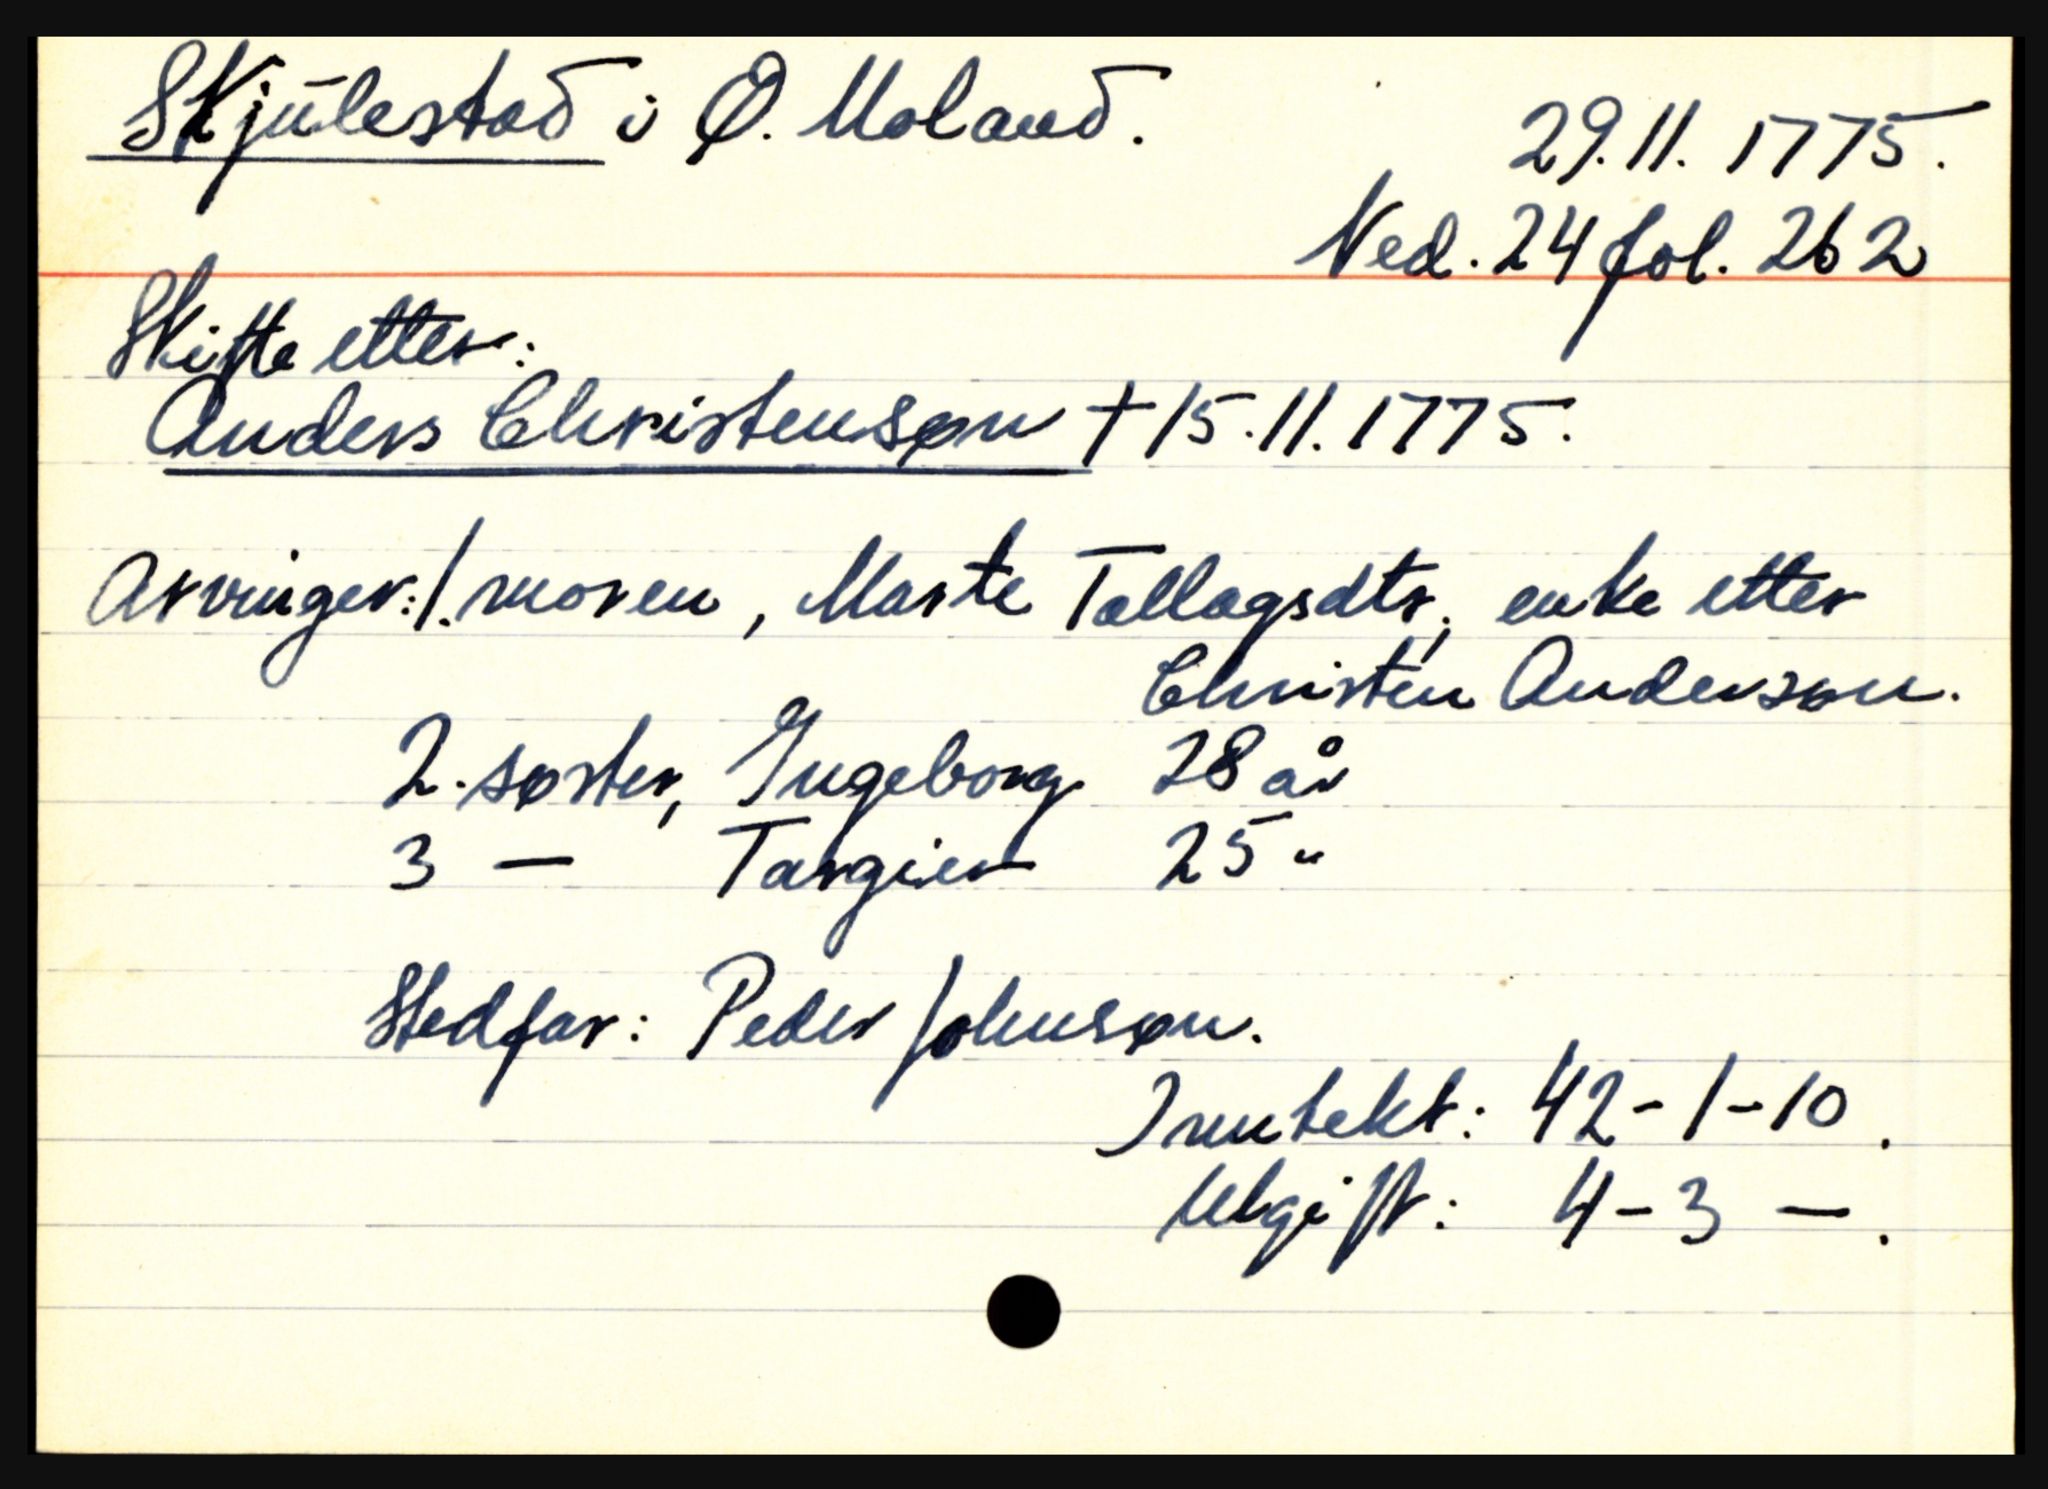 Skjulestad i Ø. Moland.
29.11.1775.
Ned. 24 fol. 262
Skifte etter:
Anders Christensøn † 15.11.1775.
Arvinger: 1. moren, Marte Tallagsdtr, enke etter
Christen Andersøn.
2. søster, Ingeborg 28 år
3 — Targier 25 "
Stedfar: Peder Johnsøn.
Inntekt: 42-1-10.
Utgift: 4-3 —.